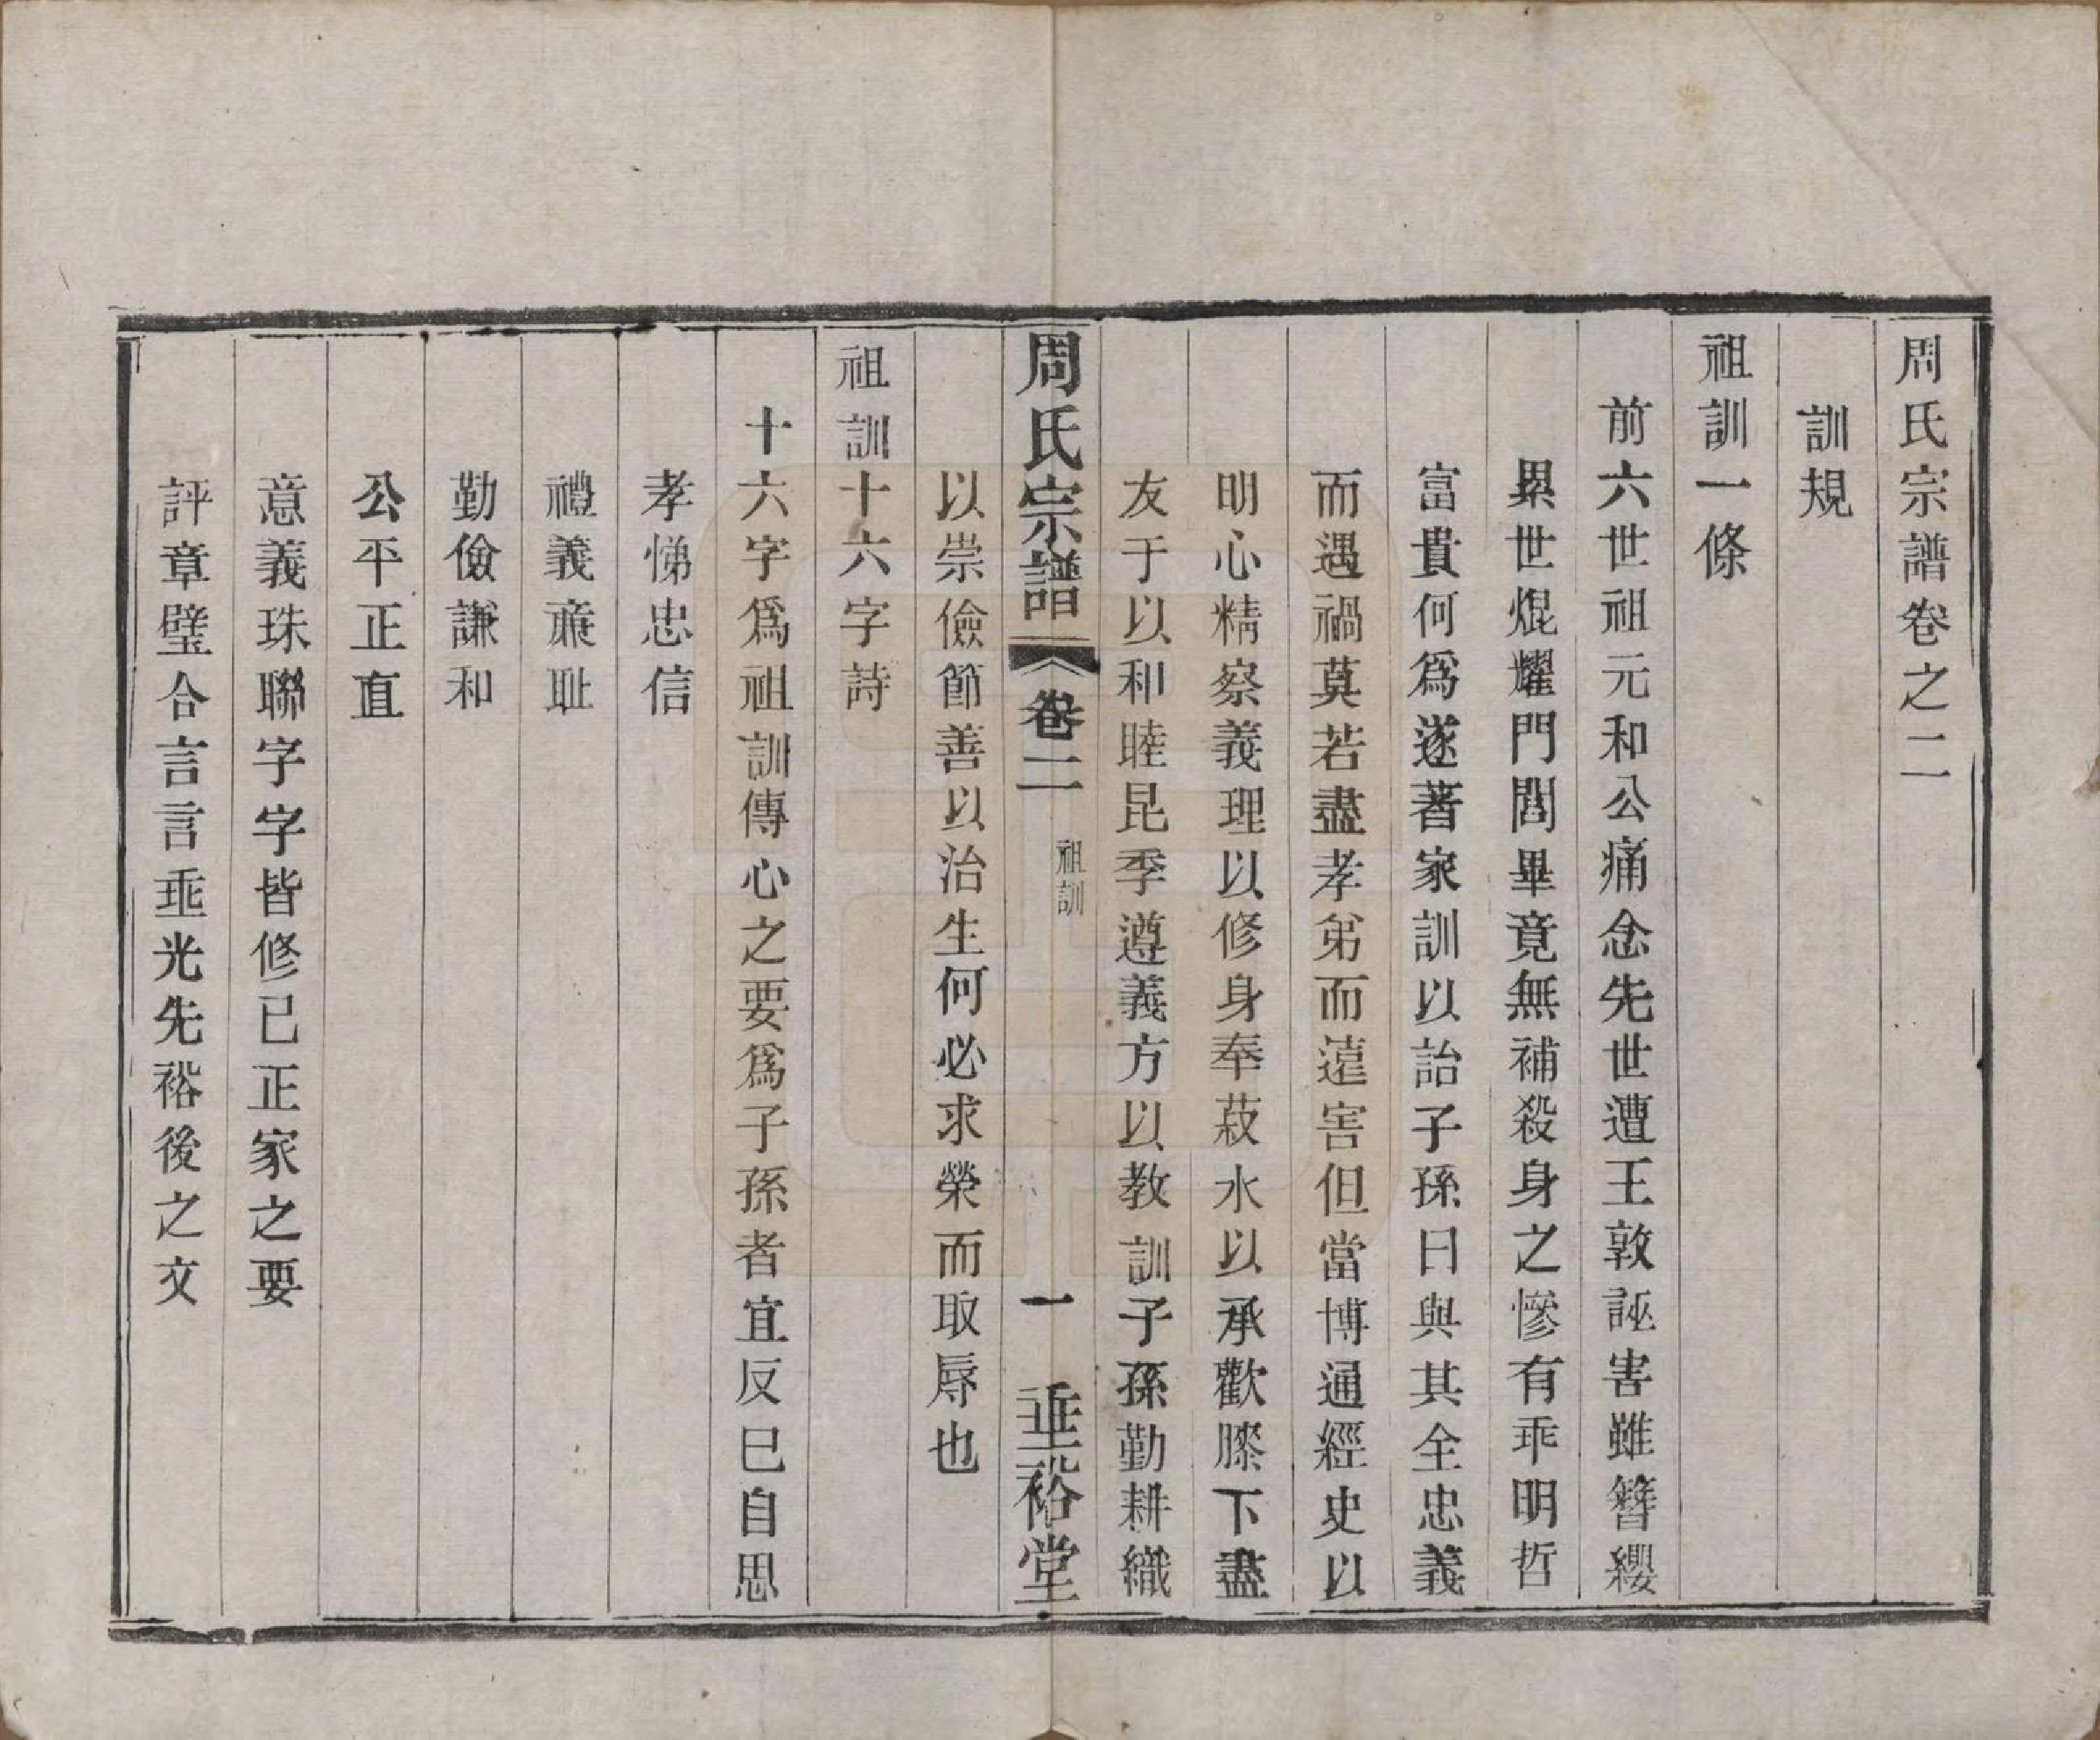 周氏宗譜卷之二
訓規
祖訓一條
前六世祖元和公痛念先世遭王敦誣害雖簪纓
累世焜耀門閭畢竟無補殺身之慘有乖明哲
富貴何爲遂著家訓以詒子孫曰與其全忠義
而遇禍莫若盡孝弟而遠害但當博通經史以
明心精察義理以修身奉菽水以承歡膝下盡
友于以和睦昆季遵義方以教訓子孫勤耕織
周氏宗譜 卷二 祖訓 一 垂裕堂
以崇儉節善以治生何必求榮而取辱也
祖訓十六字詩
十六字爲祖訓傳心之要爲子孫者宜反已自思
孝悌忠信
禮義亷耻
勤儉謙和
公平正直
意義珠聯字字皆修已正家之要
評章璧合言言垂光先裕後之文